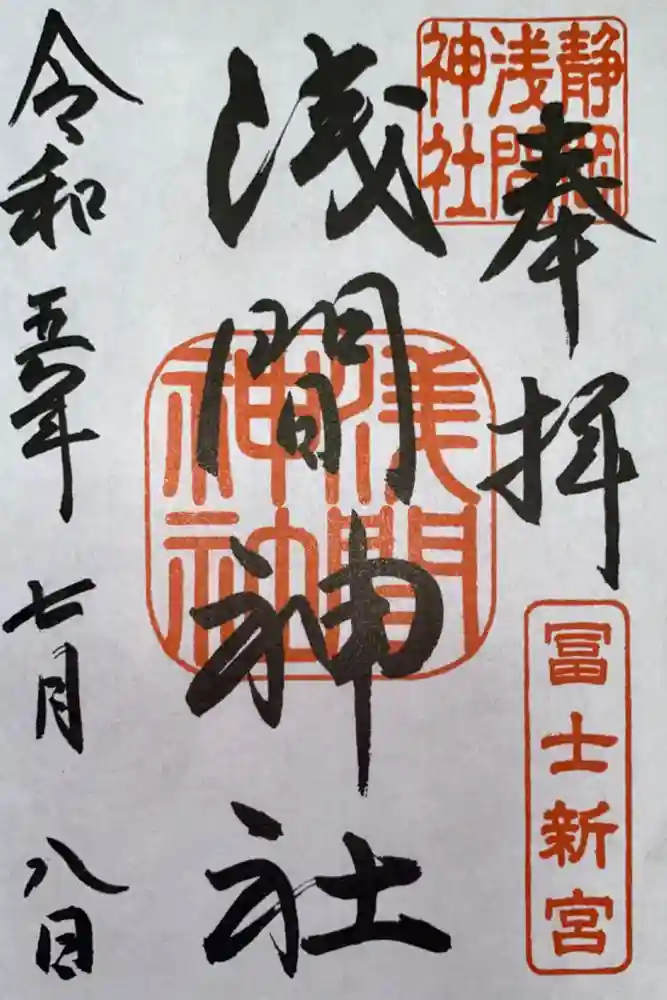 奉拝
静岡
浅間
神社
冨士新宮
浅間神社
浅間
神社
令和五年七月八日